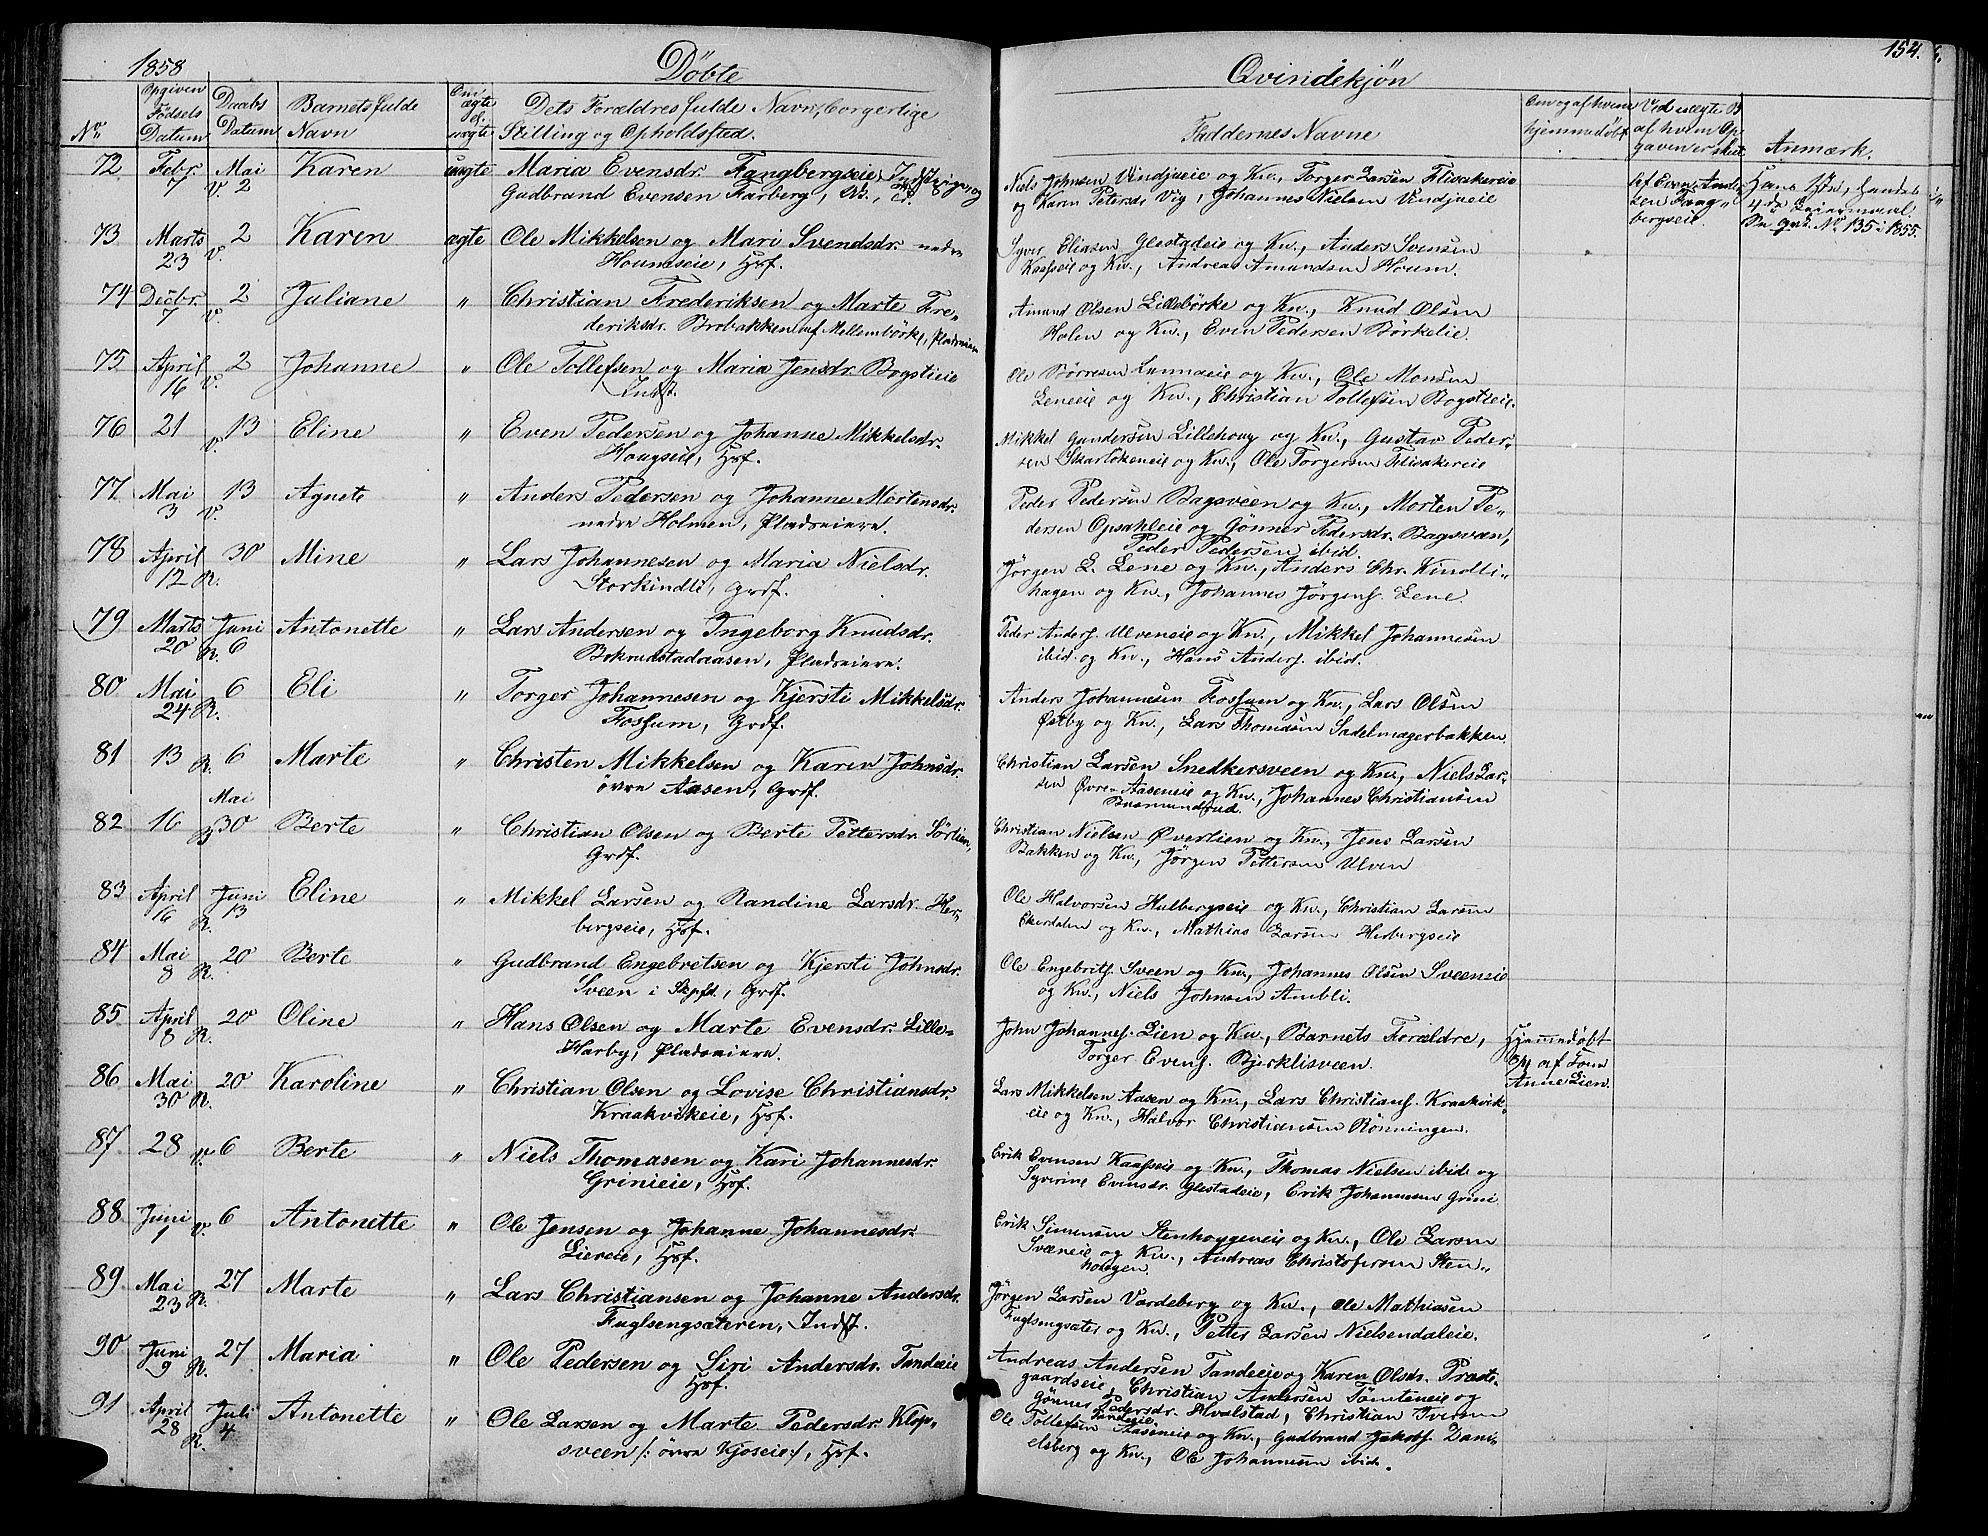 1858
Döbte
Qvindekjön
154.
No
Opgiven Födsels Datum
Daabs Datum
Barnets fulde Navn
Om ægte el. uægte
Dets Forældres fulde Navn, borgerlige Stilling og Opholdssted.
Faddernes Navne
Om og af hvem hjemmedöbt
Ved uægte B. af hvem Opgaven er skeet
Anmærk.
72 Febr. 7 Mai V. 2 Karen uægte Maria Evensdr. Fangbergseie, Indst. Pige og
Gudbrand Evensen Farberg,
Niels Johnsen Vindjueie og Kn., Torger Larsen Flisakereie
og Karen Petersdr Vig, Johannes Nielsen Vindjueie
No 135 i 1855.
73 Marts 23 2 V. Karen ægte Ole Mikkelsen og Mari Svendsdr. nedre
Houmseie, Hsf.
Syver Eliasen Glestadeie og Kn., Anders Svensen
Kaasseie og Kn., Andreas Amundsen Houm.
74 Decbr. 7 2 V. Juliane " Christian Frederiksen og Marte Fre-
deriksdr. Brobakken af Mellembörke, Pladseiere
Amund Olsen Lillebörke og Kn., Knud Olsen
Holen og Kn., Even Pedersen Börkelie.
75 April 16 2 V. Johanne " Ole Tollefsen og Maria Jensdr. Bogstieie
Indst.
Ole Börresen Lunnaeie og Kn., Ole Monsen
Leneeie og Kn., Christian Tollefsen Bogstieie.
76 21 13 V. Eline " Even Pedersen og Johanne Mikkelsdr.
Hougseie, Hsf.
Mikkel Gundersen Lillehoug og Kn., Gustav Peder-
sen Skartlöseneie og Kn., Ole Torgersen Flisakereie
77 Mai 3 13 V. Agnete " Anders Pedersen og Johanne Mortensdr.
nedre Holmen, Pladseiere.
Peder Pedersen Bagsveen og Kn., Morten Pe-
dersen Opsahleie og Gönner Pedersdr. Bagsvæn,
Peder Pedersen ibid.
78 April 12 30 R. Mine " Lars Johannesen og Maria Nielsdr.
Storkindli, Grdf.
Jörgen L. Lene og Kn., Anders Chr. Kindli-
hagen og Kn., Johannes Jörgens. Lene.
79 Marts 20 Juni R. 6 Antonette " Lars Andersen og Ingeborg Knudsdr.
Bokrudstadaasen, Pladseiere.
Peder Anders. Ulveneie og Kn., Mikkel Johannesen
ibid. og Kn., Hans Anders. ibid.
80 Mai 24 6 R. Eli " Torger Johannesen og Kjersti Mikkelsdr.
Fossum, Grdf.
Anders Johannesen Fossum og Kn., Lars Olsen
Östby og Kn., Lars Thomasen Sadelmagerbakken.
81 13 R. 6 Marte " Christen Mikkelsen og Karen Johnsdr.
övre Aasen, Grdf.
Christian Larsen Snedkersveen og Kn., Niels Lar-
sen Övre-Aaseneie og Kn., Johannes Christiansen
Busmundrud.
82 16 Mai 30 Berte " Christian Olsen og Berte Pettersdr. Sörlien,
Grdf.
Christian Nielsen Överlien og Kn., Jens Larsen
Bakken og Kn., Jörgen Pettersen Ulven
83 April 16 Juni 13 R. Eline " Mikkel Larsen og Randine Larsdr. Her-
bergseie, Hsf.
Ole Halvorsen Hulbergseie og Kn., Christian Larsen
Ekerdalen og Kn., Mathias Larsen Herbergseie
84 Mai 8 20 R. Berte " Gudbrand Engebretsen og Kjersti Johnsdr.
Sveen i Skpfd., Grdf.
Ole Engebrits. Sveen og Kn., Johannes Olsen Sveeneie
og Kn., Niels Johnsen Ambli.
85 April 8 20 R. Oline " Hans Olsen og Marte Evensdr. Lille-
Harby, Pladseiere.
John Johannes. Lien og Kn., Barnets Forældre,
Torger Evens. Bjerklisveen.
Hjemmedöbt
af Jom
Anne Lien.
86 Mai 30 20 R. Karoline " Christian Olsen og Lovise Christiansdr.
Kraakvikeie, Hsf.
Lars Mikkelsen Aasen og Kn., Lars Christians. Kraakvik-
eie og Kn., Halvor Christiansen Rönningen.
87. 28 V. 6 Berte " Niels Thomasen og Kari Johannesdr.
Grinieie, Hsf.
Erik Evensen Kaasseie og Kn., Thomas Nielsen ibid. og
Syverine Evensdr. Glestadeie, Erik Johannesen Grini
88 Juni 1 V. 6 Antonette " Ole Jensen og Johanne Johannesdr.
Liereie, Hsf.
Erik Simensen Stenhougeneie og Kn., Ole Larsen
Svæneie og Kn., Andreas Christofersen Sten-
hougen.
89. Mai 23 27 R. Marte " Lars Christiansen og Johanne Andersdr.
Fuglsengsæteren, Indst.
Jörgen Larsen Vardeberg og Kn., Ole Mathiasen
Fuglsengsæter og Kn., Petter Larsen Nielsendaleie.
90 Juni 9 27 R. Maria " Ole Pedersen og Siri Andersdr. Tandeeie
Hsf.
Andreas Andersen Tandeeie og Karen Olsdr. Præste-
gaardseie, Christian Andersen Tömteneie og
Gönner Pedersdr. Hvalstad, Christian Iversen
Tandeeie.
91 April 28 Juli 4 R. Antonette " Ole Larsen og Marte Pedersdr. Klop-
sveen /: övra Kjoseie:/, Hsf.
Ole Tollefsen Aaseneie og Kn., Gudbrand Jakobs. Dani-
elsberg og Kn., Ole Johannesen ibid.